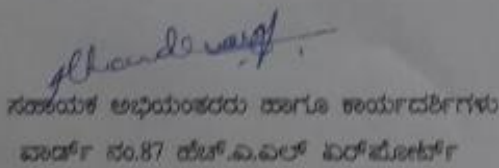 ಸಹಾಯಕ ಅಭಿಯಂತರರು ಹಾಗೂ ಕಾರ್ಯದರ್ಶಿಗಳು
ವಾರ್ಡ್ ನಂ.87 ಹೆಚ್.ಎ.ಎಲ್ ಏರ್‌ಪೋರ್ಟ್